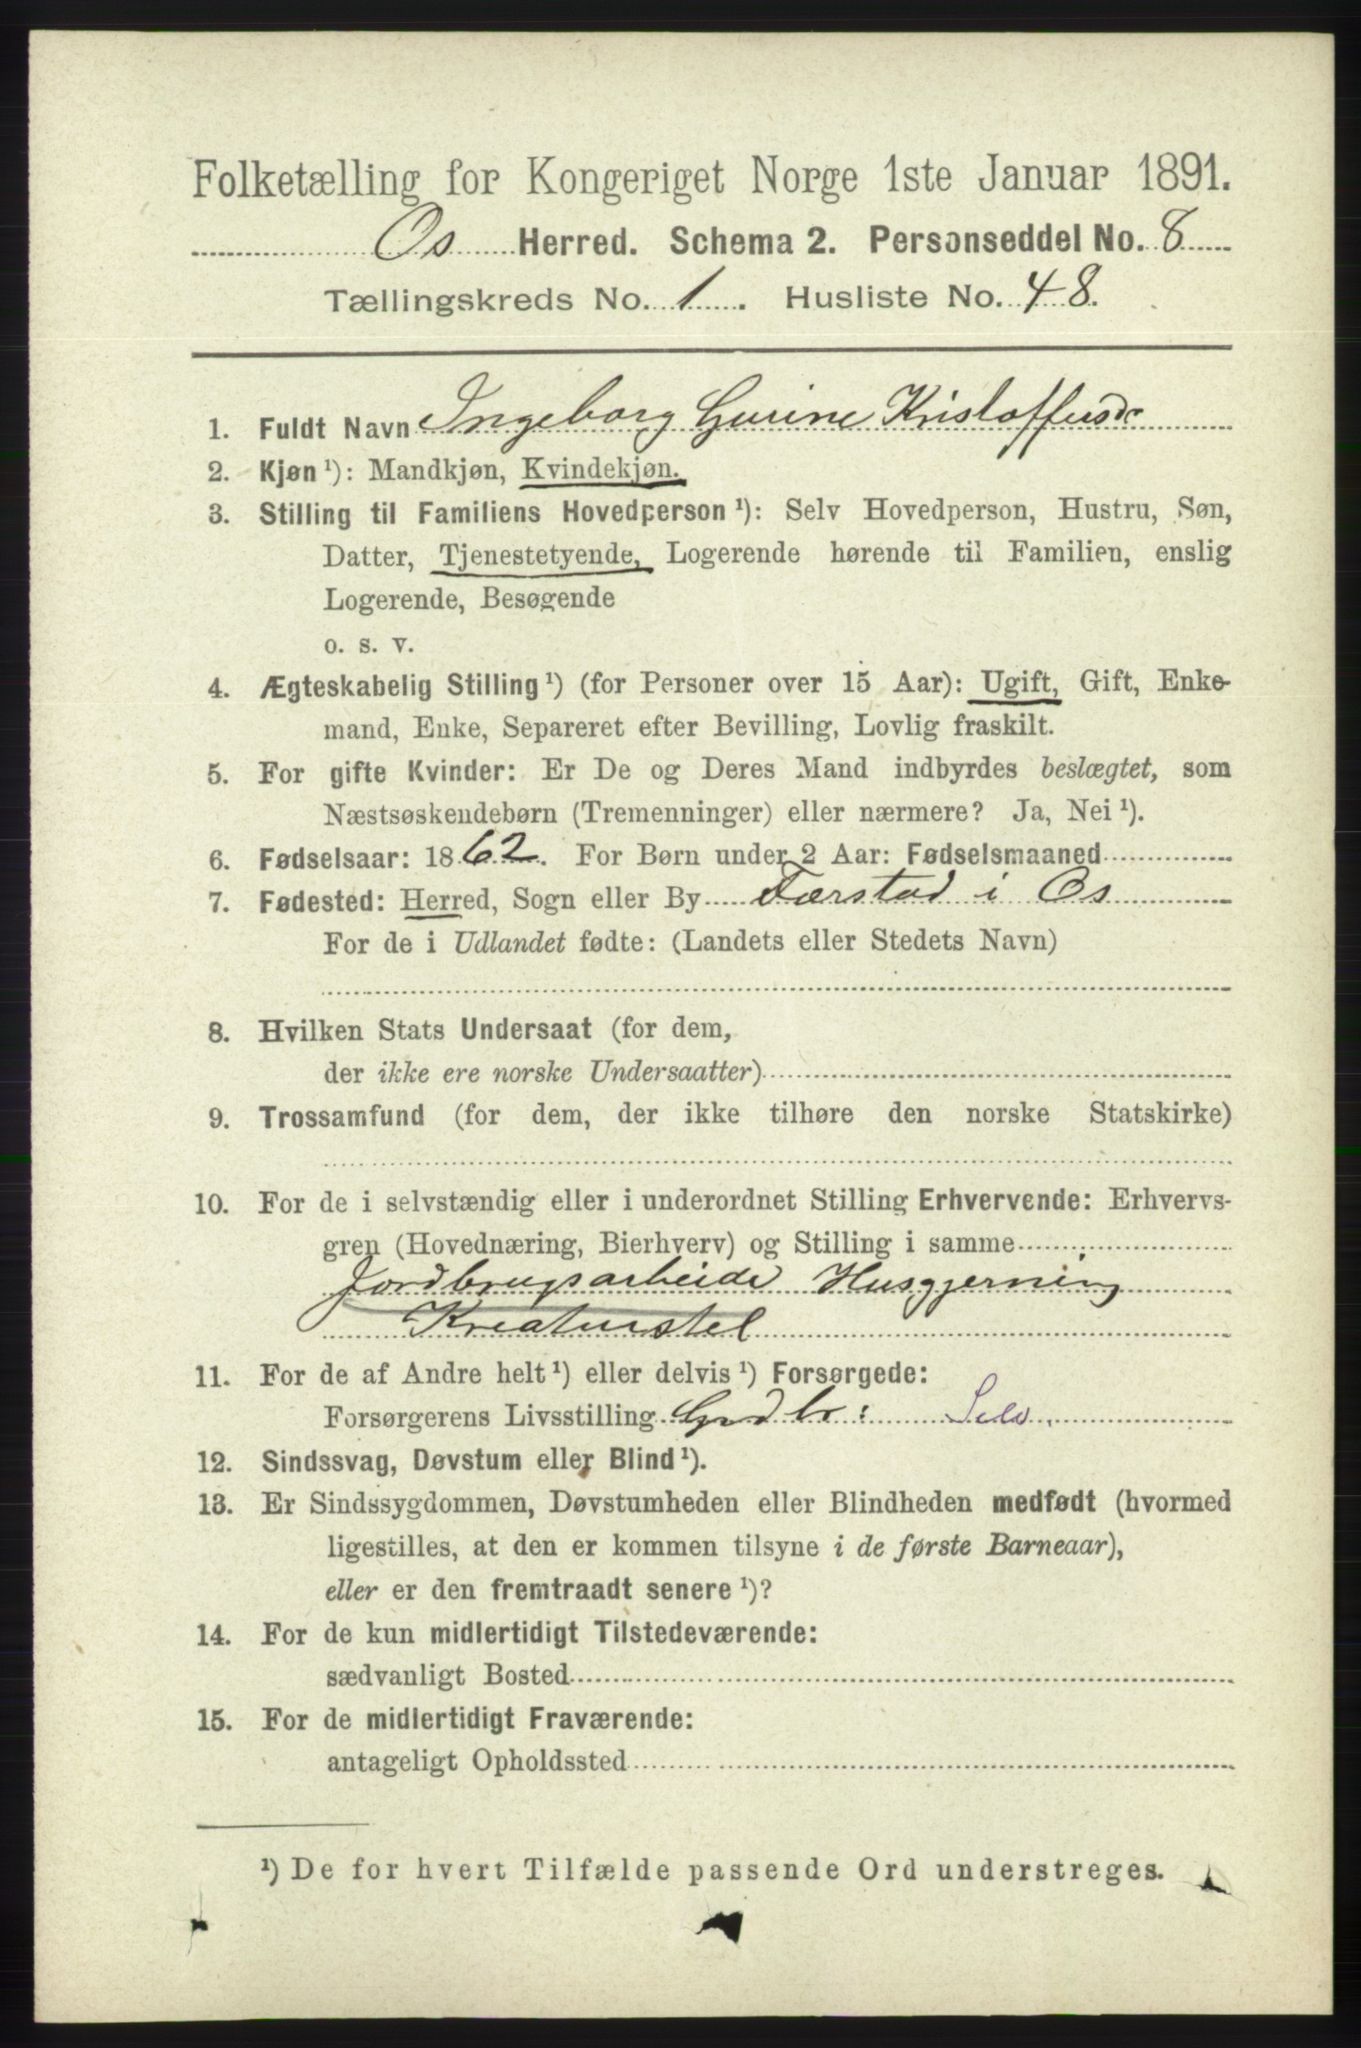 Folketælling for Kongeriget Norge 1ste Januar 1891.
Os Herred. Schema 2. Personseddel No. 8
Tællingskreds No. 1. Husliste No. 48.
1. Fuldt Navn Ingeborg Gurine Kristoffersdr
2. Kjøn ¹): Mandkjøn, Kvindekjøn.
3. Stilling til Familiens Hovedperson ¹): Selv Hovedperson, Hustru, Søn,
Datter, Tjenestetyende, Logerende hørende til Familien, enslig
Logerende, Besøgende
o. s. v.
4. Ægteskabelig Stilling ¹) (for Personer over 15 Aar): Ugift, Gift, Enke-
mand, Enke, Separeret efter Bevilling, Lovlig fraskilt.
5. For gifte Kvinder: Er De og Deres Mand indbyrdes beslægtet, som
Næstsøskendebørn (Tremenninger) eller nærmere? Ja, Nei ¹).
6. Fødselsaar: 1862. For Børn under 2 Aar: Fødselsmaaned
7. Fødested: Herred, Sogn eller By Færstad i Os
For de i Udlandet fødte: (Landets eller Stedets Navn)
8. Hvilken Stats Undersaat (for dem,
der ikke ere norske Undersaatter)
9. Trossamfund (for dem, der ikke tilhøre den norske Statskirke)
10. For de i selvstændig eller i underordnet Stilling Erhvervende: Erhvervs-
gren (Hovednæring, Bierhverv) og Stilling i samme
Jordbrugsarbeide Husgjerning
Kreaturstel
11. For de af Andre helt ¹) eller delvis ¹) Forsørgede:
Forsørgerens Livsstilling Grdbr: Selv.
12. Sindssvag, Døvstum eller Blind ¹).
13. Er Sindssygdommen, Døvstumheden eller Blindheden medfødt (hvormed
ligestilles, at den er kommen tilsyne i de første Barneaar),
eller er den fremtraadt senere ¹)?
14. For de kun midlertidigt Tilstedeværende:
sædvanligt Bosted
15. For de midlertidigt Fraværende:
antageligt Opholdssted
¹) De for hvert Tilfælde passende Ord understreges.